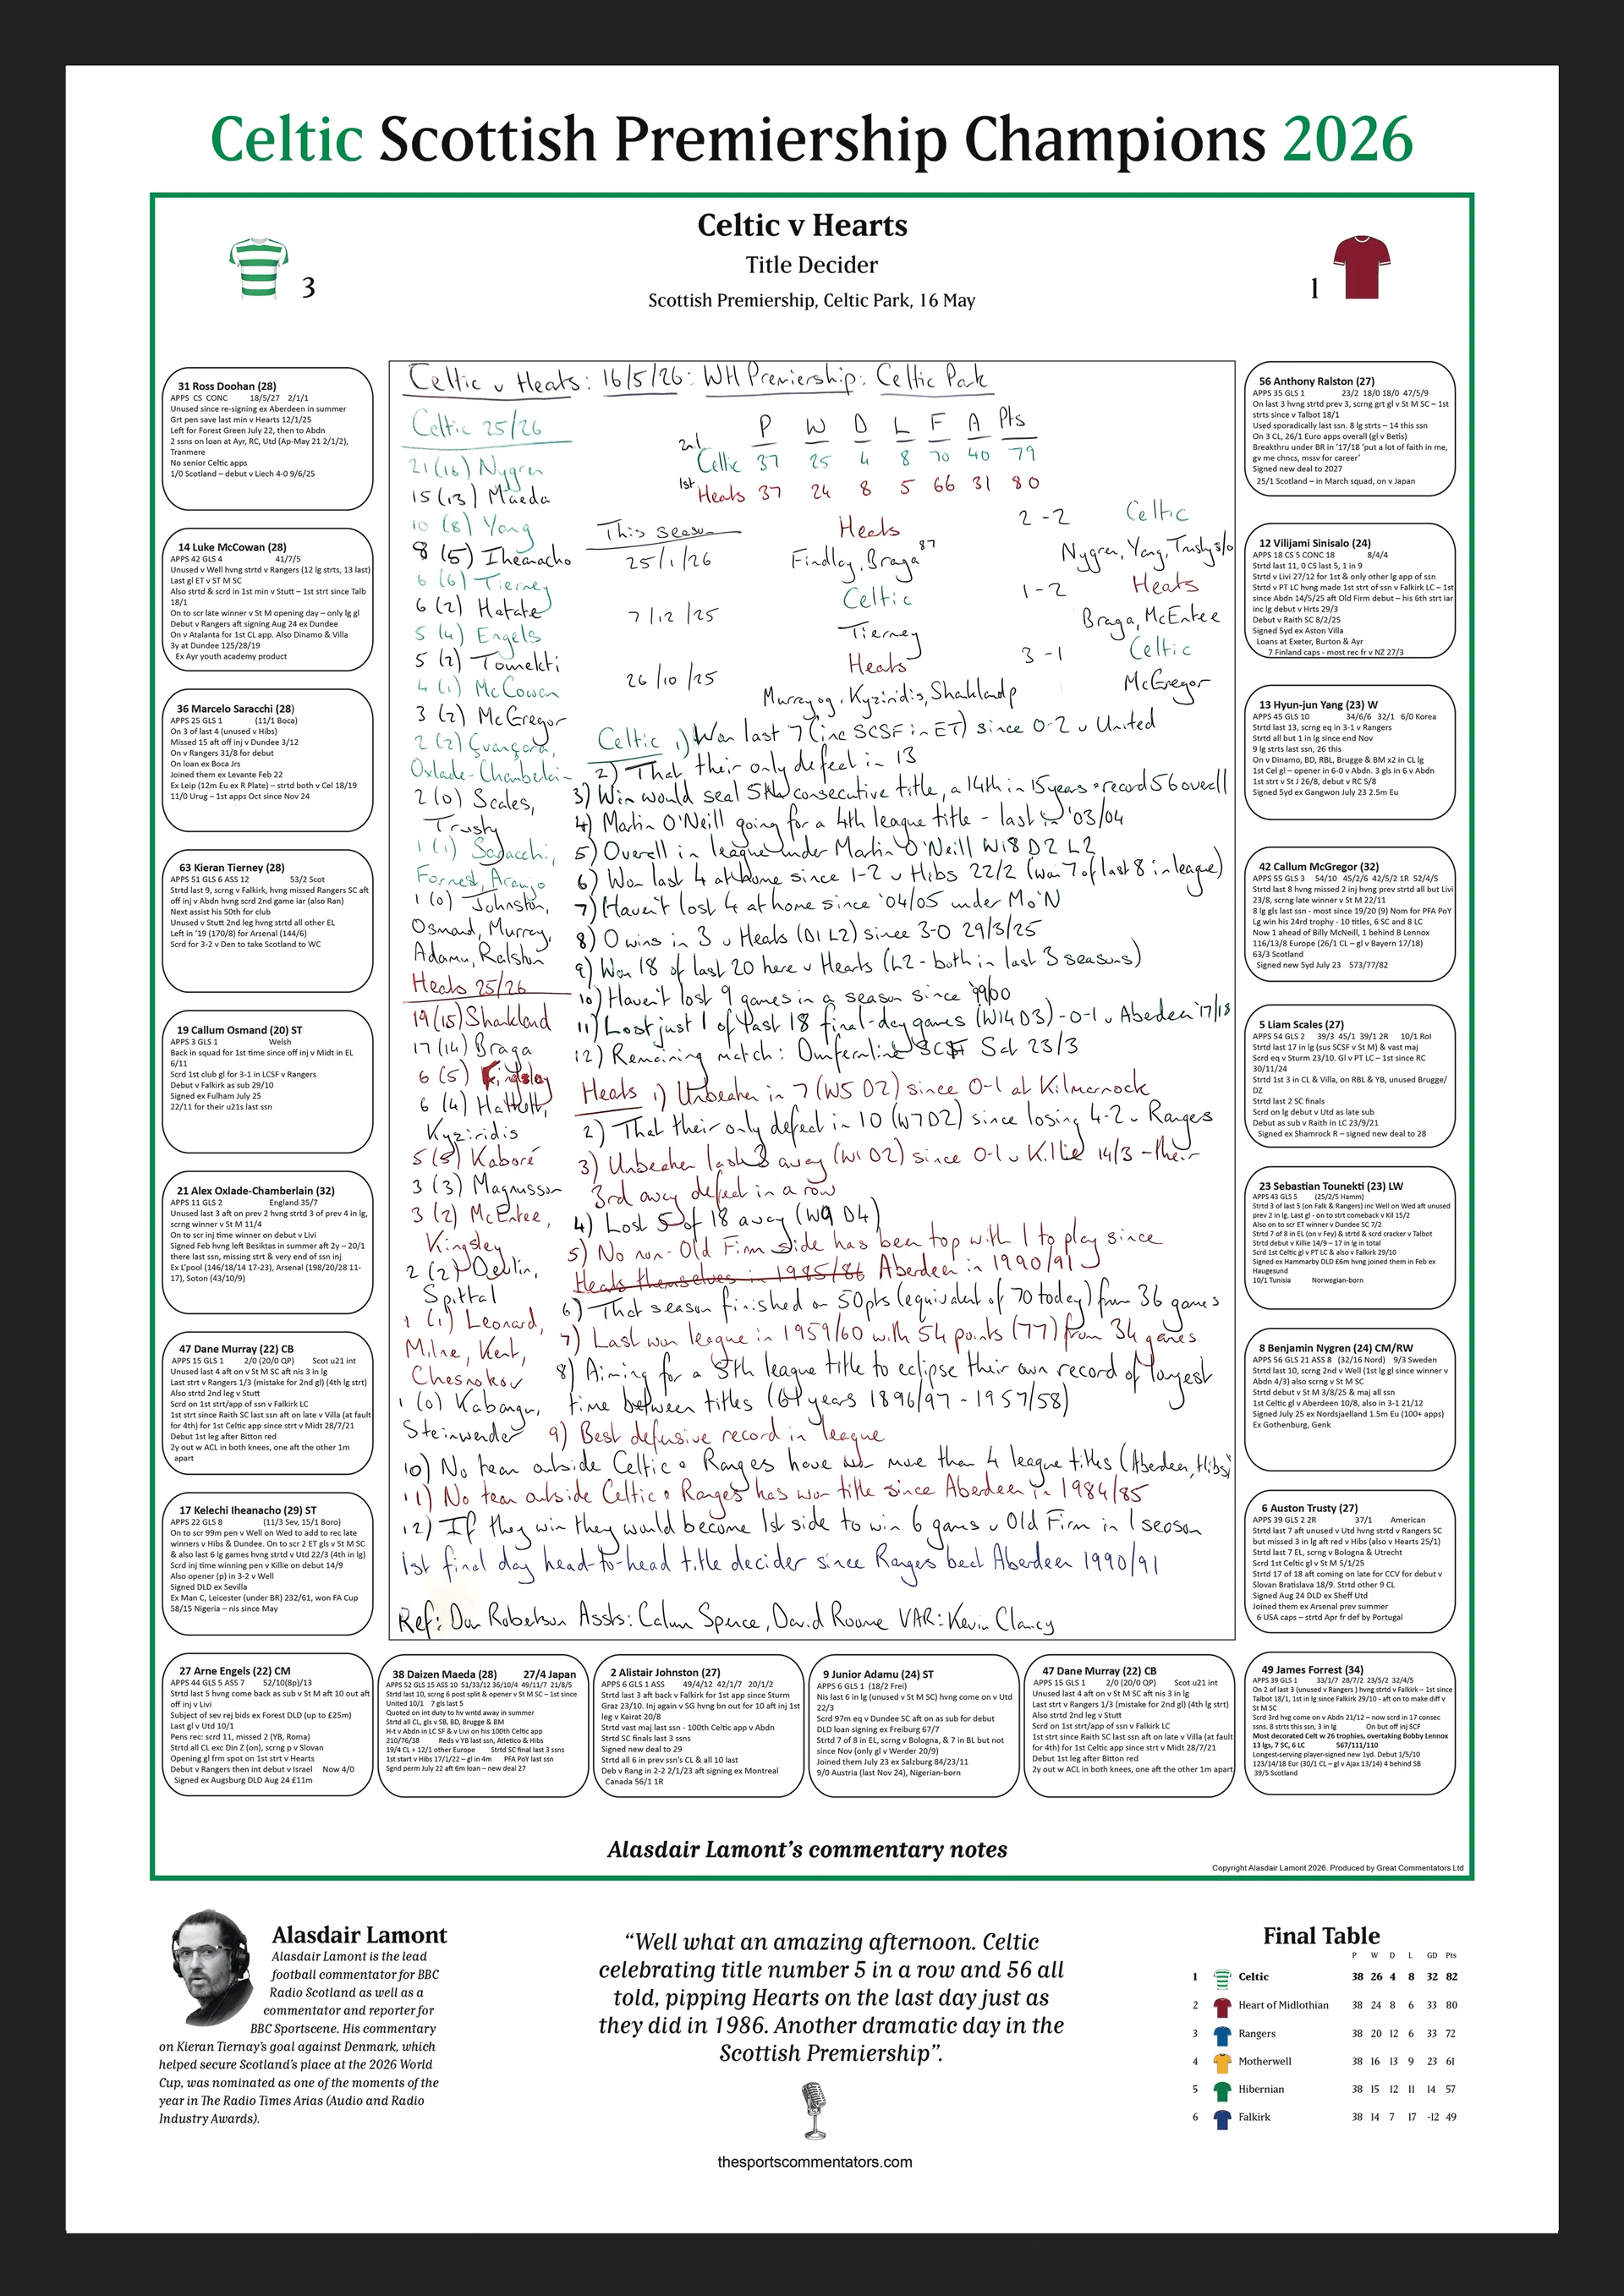 Celtic Scottish Premiership Champions 2026
Celtic v Hearts
Title Decider
Scottish Premiership, Celtic Park, 16 May
3
1
31 Ross Doohan (28)
APPS CS CONC 18/5/27 2/1/1
Unused since re-signing ex Aberdeen in summer
Grt pen save last min v Hearts 12/1/25
Left for Forest Green July 22, then to Abdn
2 ssns on loan at Ayr, RC, Utd (Ap-May 21 2/1/2),
Tranmere
No senior Celtic apps
1/0 Scotland – debut v Liech 4-0 9/6/25
14 Luke McCowan (28)
APPS 42 GLS 4 41/7/5
Unused v Well hvng strtd v Rangers (12 lg strts, 13 last)
Last gl ET v ST M SC
Also strtd & scrd in 1st min v Stutt – 1st strt since Talb
18/1
On to scr late winner v St M opening day – only lg gl
Debut v Rangers aft signing Aug 24 ex Dundee
On v Atalanta for 1st CL app. Also Dinamo & Villa
3y at Dundee 125/28/19
Ex Ayr youth academy product
36 Marcelo Saracchi (28)
APPS 25 GLS 1 (11/1 Boca)
On 3 of last 4 (unused v Hibs)
Missed 15 aft off inj v Dundee 3/12
On v Rangers 31/8 for debut
On loan ex Boca Jrs
Joined them ex Levante Feb 22
Ex Leip (12m Eu ex R Plate) – strtd both v Cel 18/19
11/0 Urug – 1st apps Oct since Nov 24
63 Kieran Tierney (28)
APPS 51 GLS 6 ASS 12 53/2 Scot
Strtd last 9, scrng v Falkirk, hvng missed Rangers SC aft
off inj v Abdn hvng scrd 2nd game iar (also Ran)
Next assist his 50th for club
Unused v Stutt 2nd leg hvng strtd all other EL
Left in '19 (170/8) for Arsenal (144/6)
Scrd for 3-2 v Den to take Scotland to WC
19 Callum Osmand (20) ST
APPS 3 GLS 1 Welsh
Back in squad for 1st time since off inj v Midt in EL
6/11
Scrd 1st club gl for 3-1 in LCSF v Rangers
Debut v Falkirk as sub 29/10
Signed ex Fulham July 25
22/11 for their u21s last ssn
21 Alex Oxlade-Chamberlain (32)
APPS 11 GLS 2 England 35/7
Unused last 3 aft on prev 2 hvng strtd 3 of prev 4 in lg,
scrng winner v St M 11/4
On to scr inj time winner on debut v Livi
Signed Feb hvng left Besiktas in summer aft 2y – 20/1
there last ssn, missing strt & very end of ssn inj
Ex L'pool (146/18/14 17-23), Arsenal (198/20/28 11-
17), Soton (43/10/9)
47 Dane Murray (22) CB
APPS 15 GLS 1 2/0 (20/0 QP) Scot u21 int
Unused last 4 aft on v St M SC aft nis 3 in lg
Last strt v Rangers 1/3 (mistake for 2nd gl) (4th lg strt)
Also strtd 2nd leg v Stutt
Scrd on 1st strt/app of ssn v Falkirk LC
1st strt since Raith SC last ssn aft on late v Villa (at fault
for 4th) for 1st Celtic app since strt v Midt 28/7/21
Debut 1st leg after Bitton red
2y out w ACL in both knees, one aft the other 1m
apart
17 Kelechi Iheanacho (29) ST
APPS 22 GLS 8 (11/3 Sev, 15/1 Boro)
On to scr 99m pen v Well on Wed to add to rec late
winners v Hibs & Dundee. On to scr 2 ET gls v St M SC
& also last 6 lg games hvng strtd v Utd 22/3 (4th in lg)
Scrd inj time winning pen v Killie on debut 14/9
Also opener (p) in 3-2 v Well
Signed DLD ex Sevilla
Ex Man C, Leicester (under BR) 232/61, won FA Cup
58/15 Nigeria – nis since May
Celtic v Hearts: 16/5/26: WH Premiership: Celtic Park
Celtic 25/26
21 (16) Nygren
15 (13) Maeda
10 (8) Yang
8 (5) Iheanacho
6 (6) Tierney
6 (2) Hatate
5 (4) Engels
5 (2) Tounekti
4 (1) McCowan
3 (2) McGregor
2 (2) Çvançara,
Oxlade-Chamberlain
2 (0) Scales,
Trusty
1 (1) Saracchi,
Forrest, Araujo
1 (0) Johnston,
Osmand, Murray,
Adamu, Ralston
Hearts 25/26
19 (15) Shankland
17 (14) Braga
6 (5) Findlay
6 (4) Halkett,
Kyziridis
5 (5) Kaboré
3 (3) Magnusson
3 (2) McEntee,
Kingsley
2 (2) Devlin,
Spittal
1 (1) Leonard,
Milne, Kent,
Chesnokov
1 (0) Kabangu,
Steinwender
P W D L F A Pts
2nd Celtic 37 25 4 8 70 40 79
1st Hearts 37 24 8 5 66 31 80
This season
25/1/26 Hearts 2-2 Celtic
Findlay, Braga 87 Nygren, Yang, Trusty s/o
7/12/25 Celtic 1-2 Hearts
Tierney Braga, McEntee
26/10/25 Hearts 3-1 Celtic
Murray og, Kyziridis, Shankland p McGregor
Celtic 1) Won last 7 (inc SCSF in ET) since 0-2 v United
2) That their only defeat in 13
3) Win would seal 5th consecutive title, a 14th in 15 years + record 56 overall
4) Martin O'Neill going for a 4th league title - last in '03/04
5) Overall in league under Martin O'Neill W18 D2 L2
6) Won last 4 at home since 1-2 v Hibs 22/2 (won 7 of last 8 in league)
7) Haven't lost 4 at home since '04/05 under Mo'N
8) 0 wins in 3 v Hearts (D1 L2) since 3-0 29/3/25
9) Won 18 of last 20 here v Hearts (L2 - both in last 3 seasons)
10) Haven't lost 9 games in a season since '99/00
11) Lost just 1 of last 18 final-day games (W14 D3) - 0-1 v Aberdeen '17/18
12) Remaining match: Dunfermline SCF Sat 23/3
Hearts 1) Unbeaten in 7 (W5 D2) since 0-1 at Kilmarnock
2) That their only defeat in 10 (W7 D2) since losing 4-2 v Rangers
3) Unbeaten last 3 away (W1 D2) since 0-1 v Killie 14/3 - their
3rd away defeat in a row
4) Lost 5 of 18 away (W9 D4)
5) No non-Old Firm side has been top with 1 to play since
Hearts themselves in 1985/86 Aberdeen in 1990/91
6) That season finished on 50pts (equivalent of 70 today) from 36 games
7) Last won league in 1959/60 with 54 points (77) from 34 games
8) Aiming for a 5th league title to eclipse their own record of longest
time between titles (61 years 1896/97 - 1957/58)
9) Best defensive record in league
10) No team outside Celtic + Rangers have won more than 4 league titles (Aberdeen, Hibs)
11) No team outside Celtic + Rangers has won title since Aberdeen in 1984/85
12) If they win they would become 1st side to win 6 games v Old Firm in 1 season
1st final day head-to-head title decider since Rangers beat Aberdeen 1990/91
Ref: Don Robertson Assts: Calum Spence, David Roome VAR: Kevin Clancy
56 Anthony Ralston (27)
APPS 35 GLS 1 23/2 18/0 18/0 47/5/9
On last 3 hvng strtd prev 3, scrng grt gl v St M SC – 1st
strts since v Talbot 18/1
Used sporadically last ssn. 8 lg strts – 14 this ssn
On 3 CL, 26/1 Euro apps overall (gl v Betis)
Breakthru under BR in '17/18 'put a lot of faith in me,
gv me chncs, mssv for career'
Signed new deal to 2027
25/1 Scotland – in March squad, on v Japan
12 Viljami Sinisalo (24)
APPS 18 CS 5 CONC 18 8/4/4
Strtd last 11, 0 CS last 5, 1 in 9
Strtd v Livi 27/12 for 1st & only other lg app of ssn
Strtd v PT LC hvng made 1st strt of ssn v Falkirk LC – 1st
since Abdn 14/5/25 aft Old Firm debut – his 6th strt iar
inc lg debut v Hrts 29/3
Debut v Raith SC 8/2/25
Signed 5yd ex Aston Villa
Loans at Exeter, Burton & Ayr
7 Finland caps - most rec fr v NZ 27/3
13 Hyun-jun Yang (23) W
APPS 45 GLS 10 34/6/6 32/1 6/0 Korea
Strtd last 13, scrng eq in 3-1 v Rangers
Strtd all but 1 in lg since end Nov
9 lg strts last ssn, 26 this
On v Dinamo, BD, RBL, Brugge & BM x2 in CL lg
1st Cel gl – opener in 6-0 v Abdn. 3 gls in 6 v Abdn
1st strt v St J 26/8, debut v RC 5/8
Signed 5yd ex Gangwon July 23 2.5m Eu
42 Callum McGregor (32)
APPS 55 GLS 3 54/10 45/2/6 42/5/2 1R 52/4/5
Strtd last 8 hvng missed 2 inj hvng prev strtd all but Livi
23/8, scrng late winner v St M 22/11
8 lg gls last ssn - most since 19/20 (9) Nom for PFA PoY
Lg win his 24rd trophy - 10 titles, 6 SC and 8 LC
Now 1 ahead of Billy McNeill, 1 behind B Lennox
116/13/8 Europe (26/1 CL – gl v Bayern 17/18)
63/3 Scotland
Signed new 5yd July 23 573/77/82
5 Liam Scales (27)
APPS 54 GLS 2 39/3 45/1 39/1 2R 10/1 RoI
Strtd last 17 in lg (sus SCSF v St M) & vast maj
Scrd eq v Sturm 23/10. Gl v PT LC – 1st since RC
30/11/24
Strtd 1st 3 in CL & Villa, on RBL & YB, unused Brugge/
DZ
Strtd last 2 SC finals
Scrd on lg debut v Utd as late sub
Debut as sub v Raith in LC 23/9/21
Signed ex Shamrock R – signed new deal to 28
23 Sebastian Tounekti (23) LW
APPS 43 GLS 5 (25/2/5 Hamm)
Strtd 3 of last 5 (on Falk & Rangers) inc Well on Wed aft unused
prev 2 in lg. Last gl - on to strt comeback v Kil 15/2
Also on to scr ET winner v Dundee SC 7/2
Strtd 7 of 8 in EL (on v Fey) & strtd & scrd cracker v Talbot
Strtd debut v Killie 14/9 – 17 in lg in total
Scrd 1st Celtic gl v PT LC & also v Falkirk 29/10
Signed ex Hammarby DLD £6m hvng joined them in Feb ex
Haugesund
10/1 Tunisia Norwegian-born
8 Benjamin Nygren (24) CM/RW
APPS 56 GLS 21 ASS 8 (32/16 Nord) 9/3 Sweden
Strtd last 10, scrng 2nd v Well (1st lg gl since winner v
Abdn 4/3) also scrng v St M SC
Strtd debut v St M 3/8/25 & maj all ssn
1st Celtic gl v Aberdeen 10/8, also in 3-1 21/12
Signed July 25 ex Nordsjaelland 1.5m Eu (100+ apps)
Ex Gothenburg, Genk
6 Auston Trusty (27)
APPS 39 GLS 2 2R 37/1 American
Strtd last 7 aft unused v Utd hvng strtd v Rangers SC
but missed 3 in lg aft red v Hibs (also v Hearts 25/1)
Strtd last 7 EL, scrng v Bologna & Utrecht
Scrd 1st Celtic gl v St M 5/1/25
Strtd 17 of 18 aft coming on late for CCV for debut v
Slovan Bratislava 18/9. Strtd other 9 CL
Signed Aug 24 DLD ex Sheff Utd
Joined them ex Arsenal prev summer
6 USA caps – strtd Apr fr def by Portugal
27 Arne Engels (22) CM
APPS 44 GLS 5 ASS 7 52/10(8p)/13
Strtd last 5 hvng come back as sub v St M aft 10 out aft
off inj v Livi
Subject of sev rej bids ex Forest DLD (up to £25m)
Last gl v Utd 10/1
Pens rec: scrd 11, missed 2 (YB, Roma)
Strtd all CL exc Din Z (on), scrng p v Slovan
Opening gl frm spot on 1st strt v Hearts
Debut v Rangers then int debut v Israel Now 4/0
Signed ex Augsburg DLD Aug 24 £11m
38 Daizen Maeda (28) 27/4 Japan
APPS 52 GLS 15 ASS 10 51/33/12 36/10/4 49/11/7 21/8/5
Strtd last 10, scrng 6 post split & opener v St M SC – 1st since
United 10/1 7 gls last 5
Quoted on int duty to hv wntd away in summer
Strtd all CL, gls v SB, BD, Brugge & BM
H-t v Abdn in LC SF & v Livi on his 100th Celtic app
210/76/38 Reds v YB last ssn, Atletico & Hibs
19/4 CL + 12/1 other Europe Strtd SC final last 3 ssns
1st start v Hibs 17/1/22 – gl in 4m PFA PoY last ssn
Sgnd perm July 22 aft 6m loan – new deal 27
2 Alistair Johnston (27)
APPS 6 GLS 1 ASS 49/4/12 42/1/7 20/1/2
Strtd last 3 aft back v Falkirk for 1st app since Sturm
Graz 23/10. Inj again v SG hvng bn out for 10 aft inj 1st
leg v Kairat 20/8
Strtd vast maj last ssn - 100th Celtic app v Abdn
Strtd SC finals last 3 ssns
Signed new deal to 29
Strtd all 6 in prev ssn's CL & all 10 last
Deb v Rang in 2-2 2/1/23 aft signing ex Montreal
Canada 56/1 1R
9 Junior Adamu (24) ST
APPS 6 GLS 1 (18/2 Frei)
Nis last 6 in lg (unused v St M SC) hvng come on v Utd
22/3
Scrd 97m eq v Dundee SC aft on as sub for debut
DLD loan signing ex Freiburg 67/7
Strtd 7 of 8 in EL, scrng v Bologna, & 7 in BL but not
since Nov (only gl v Werder 20/9)
Joined them July 23 ex Salzburg 84/23/11
9/0 Austria (last Nov 24), Nigerian-born
47 Dane Murray (22) CB
APPS 15 GLS 1 2/0 (20/0 QP) Scot u21 int
Unused last 4 aft on v St M SC aft nis 3 in lg
Last strt v Rangers 1/3 (mistake for 2nd gl) (4th lg strt)
Also strtd 2nd leg v Stutt
Scrd on 1st strt/app of ssn v Falkirk LC
1st strt since Raith SC last ssn aft on late v Villa (at fault
for 4th) for 1st Celtic app since strt v Midt 28/7/21
Debut 1st leg after Bitton red
2y out w ACL in both knees, one aft the other 1m apart
49 James Forrest (34)
APPS 39 GLS 1 33/1/7 28/7/2 23/5/2 32/4/5
On 2 of last 3 (unused v Rangers ) hvng strtd v Falkirk – 1st since
Talbot 18/1, 1st in lg since Falkirk 29/10 - aft on to make diff v
St M SC
Scrd 3rd hvg come on v Abdn 21/12 – now scrd in 17 consec
ssns. 8 strts this ssn, 3 in lg On but off inj SCF
Most decorated Celt w 26 trophies, overtaking Bobby Lennox
13 lgs, 7 SC, 6 LC 567/111/110
Longest-serving player-signed new 1yd. Debut 1/5/10
123/14/18 Eur (30/1 CL – gl v Ajax 13/14) 4 behind SB
39/5 Scotland
Alasdair Lamont's commentary notes
Copyright Alasdair Lamont 2026. Produced by Great Commentators Ltd
Alasdair Lamont
Alasdair Lamont is the lead
football commentator for BBC
Radio Scotland as well as a
commentator and reporter for
BBC Sportscene. His commentary
on Kieran Tiernay's goal against Denmark, which
helped secure Scotland's place at the 2026 World
Cup, was nominated as one of the moments of the
year in The Radio Times Arias (Audio and Radio
Industry Awards).
“Well what an amazing afternoon. Celtic
celebrating title number 5 in a row and 56 all
told, pipping Hearts on the last day just as
they did in 1986. Another dramatic day in the
Scottish Premiership”.
thesportscommentators.com
Final Table
P W D L GD Pts
1 Celtic 38 26 4 8 32 82
2 Heart of Midlothian 38 24 8 6 33 80
3 Rangers 38 20 12 6 33 72
4 Motherwell 38 16 13 9 23 61
5 Hibernian 38 15 12 11 14 57
6 Falkirk 38 14 7 17 -12 49